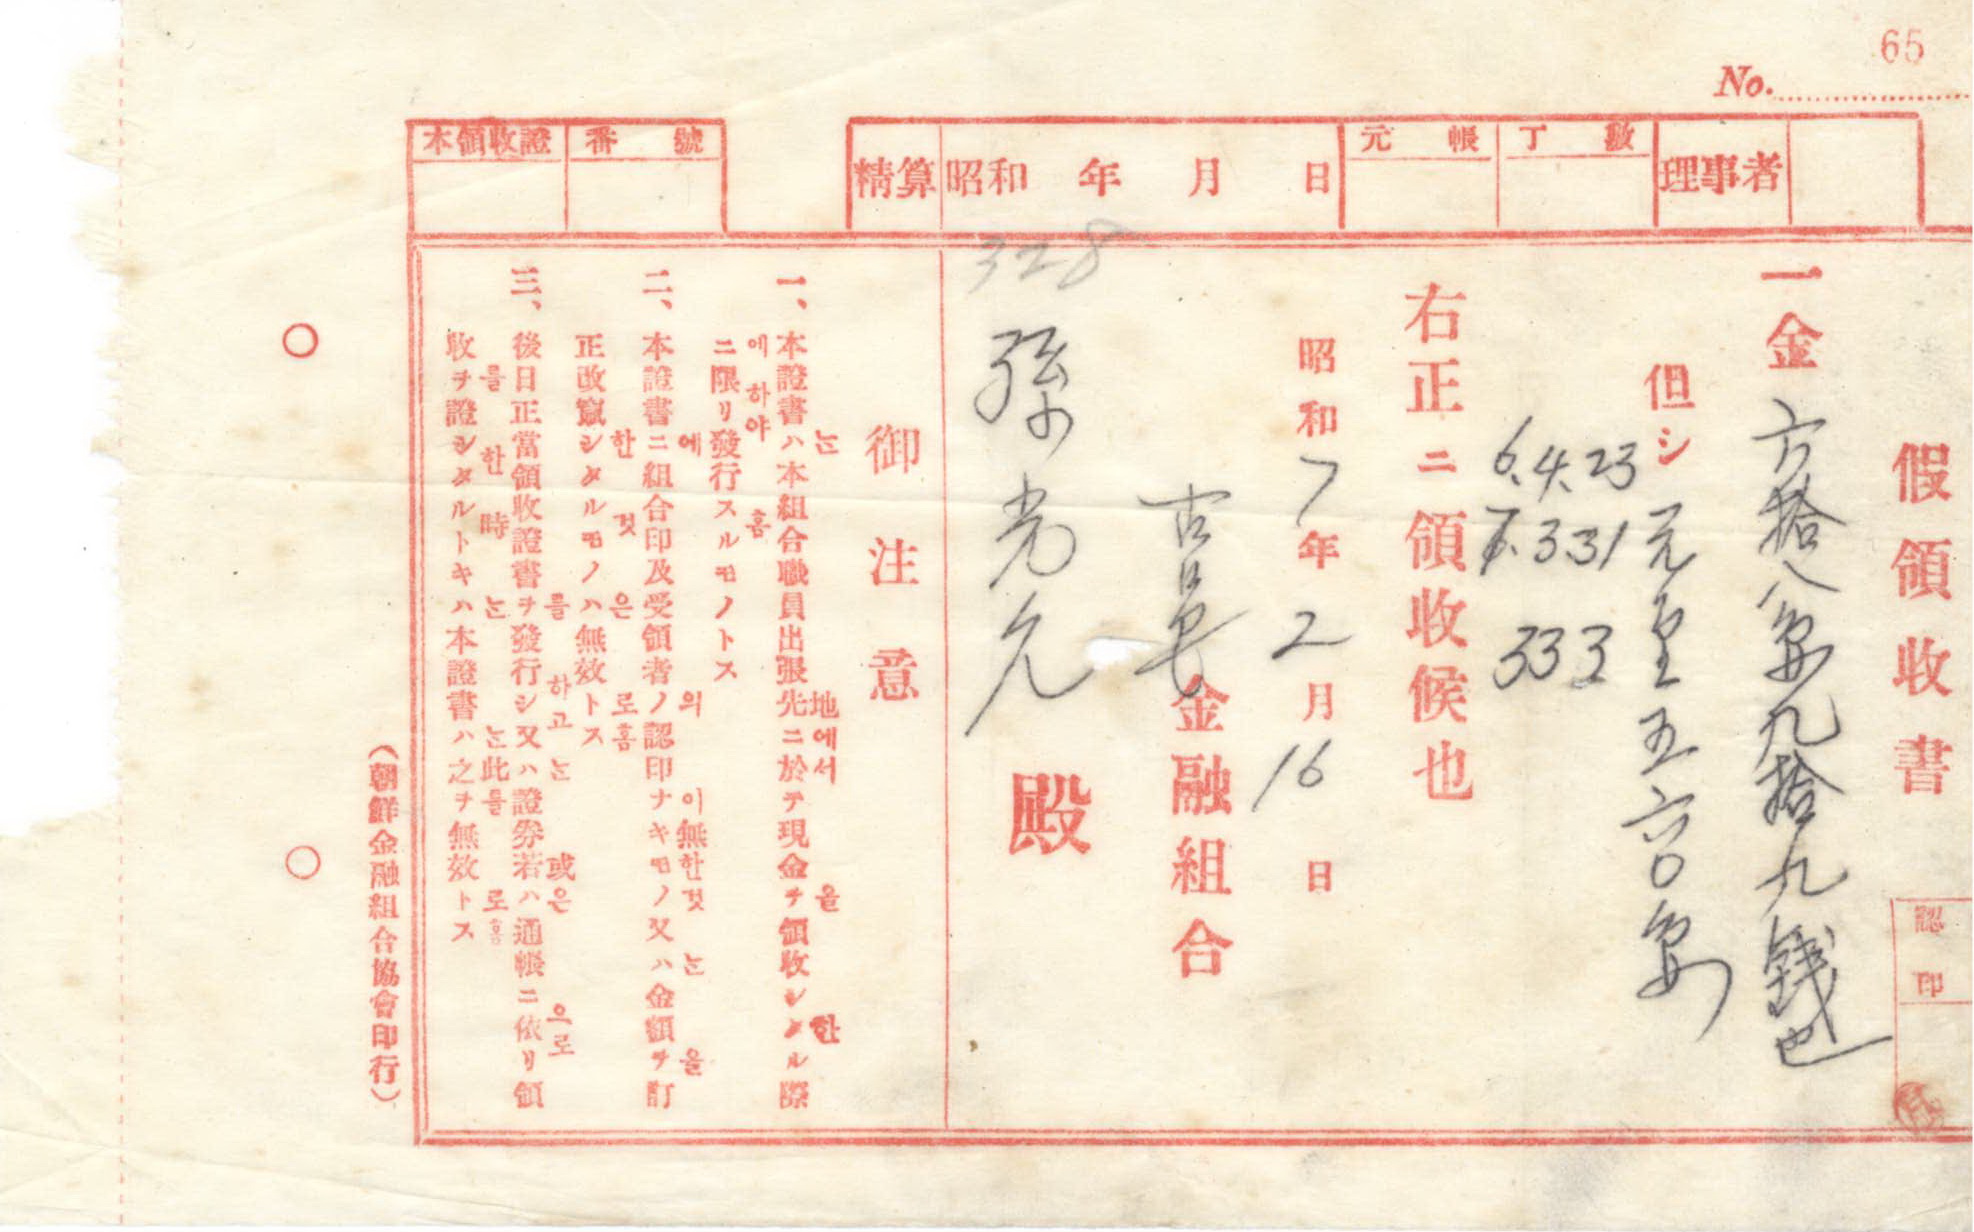 65
No.
理事者
元帳 丁數
精算 昭和 年 月 日
番號
本領收證
假領收書
認印
一金 六拾八円九拾九錢也
但シ 元里五六〇
6.4.23
7.3.31
333
右正ニ領收候也
昭和7年2月16日
古邑金融組合
328
孫光允殿
御注意
는 地에서 을 한
一、本證書ハ本組合職員出張先ニ於テ現金ヲ領收シタル際
에하야 홈
ニ限リ發行スルモノトス
에 의 이無한것는 을
二、本證書ニ組合印及受領者ノ認印ナキモノ又ハ金額ヲ訂
한 것은 로홈
正改竄シタルモノハ無效トス
를 하고는 或은 으로
三、後日正當領收證書ヲ發行シ又ハ證券若ハ通帳ニ依リ領
를 한 時는 는此를 로홈
收ヲ證シタルトキハ本證書ハ之ヲ無效トス
（朝鮮金融組合協會印行）